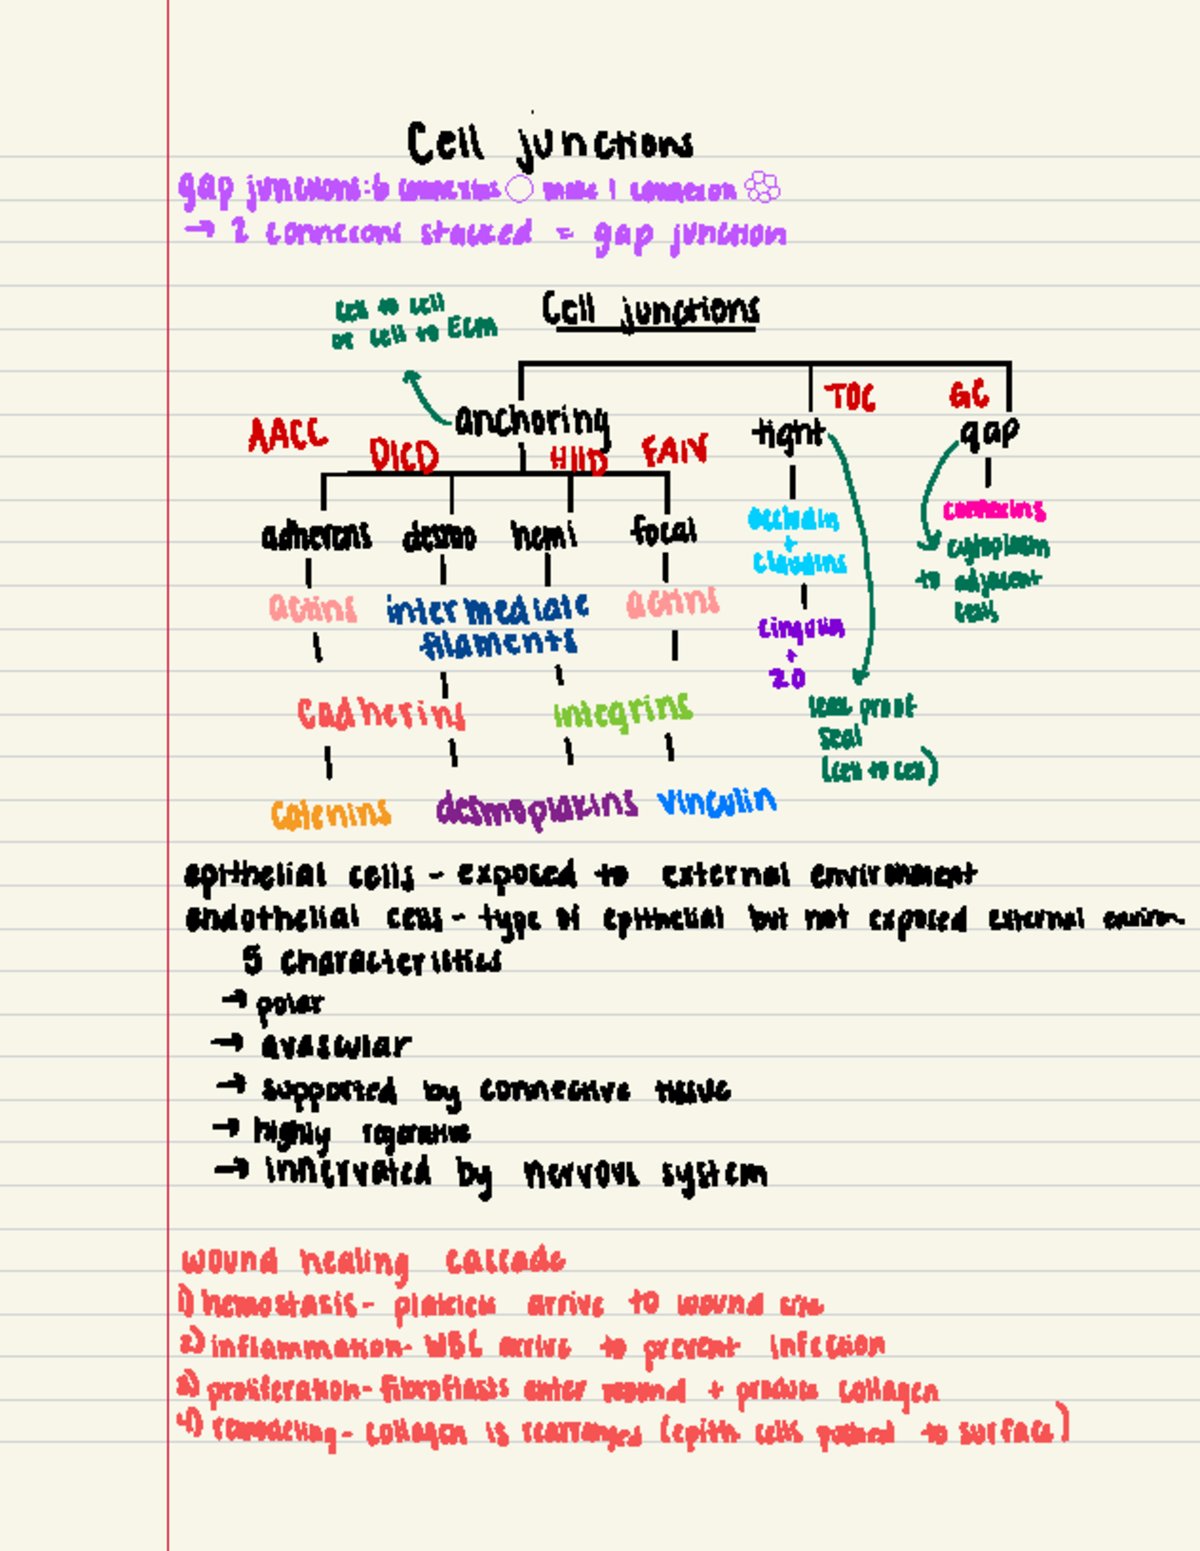 Cell junctions
gap junctions: 6 connexins make 1 connexon
→ 2 connexons stacked = gap junction
Cell junctions
cell to cell
or cell to ECM
TOC
GC
anchoring
tight
gap
AACC
DICD
HIID
FAIV
adherens
desmo
hemi
focal
occludin
+
claudins
connexins
cytoplasm
to adjacent
cells
actins
intermediate
filaments
actins
cingulin
+
ZO
cadherins
integrins
leak proof
seal
(cell to cell)
catenins
desmoplakins
vinculin
epithelial cells - exposed to external environment
endothelial cells - type of epithelial but not exposed external environ
5 characteristics
→ polar
→ avascular
→ supported by connective tissue
→ highly
→ innervated by nervous system
wound healing cascade
1) hemostasis - platelets arrive to wound site
2) inflammation - WBC arrive to prevent infection
3) proliferation - fibroflasts enter wound + produce collagen
4) remodeling - collagen is rearranged (epith cells pushed to surface)